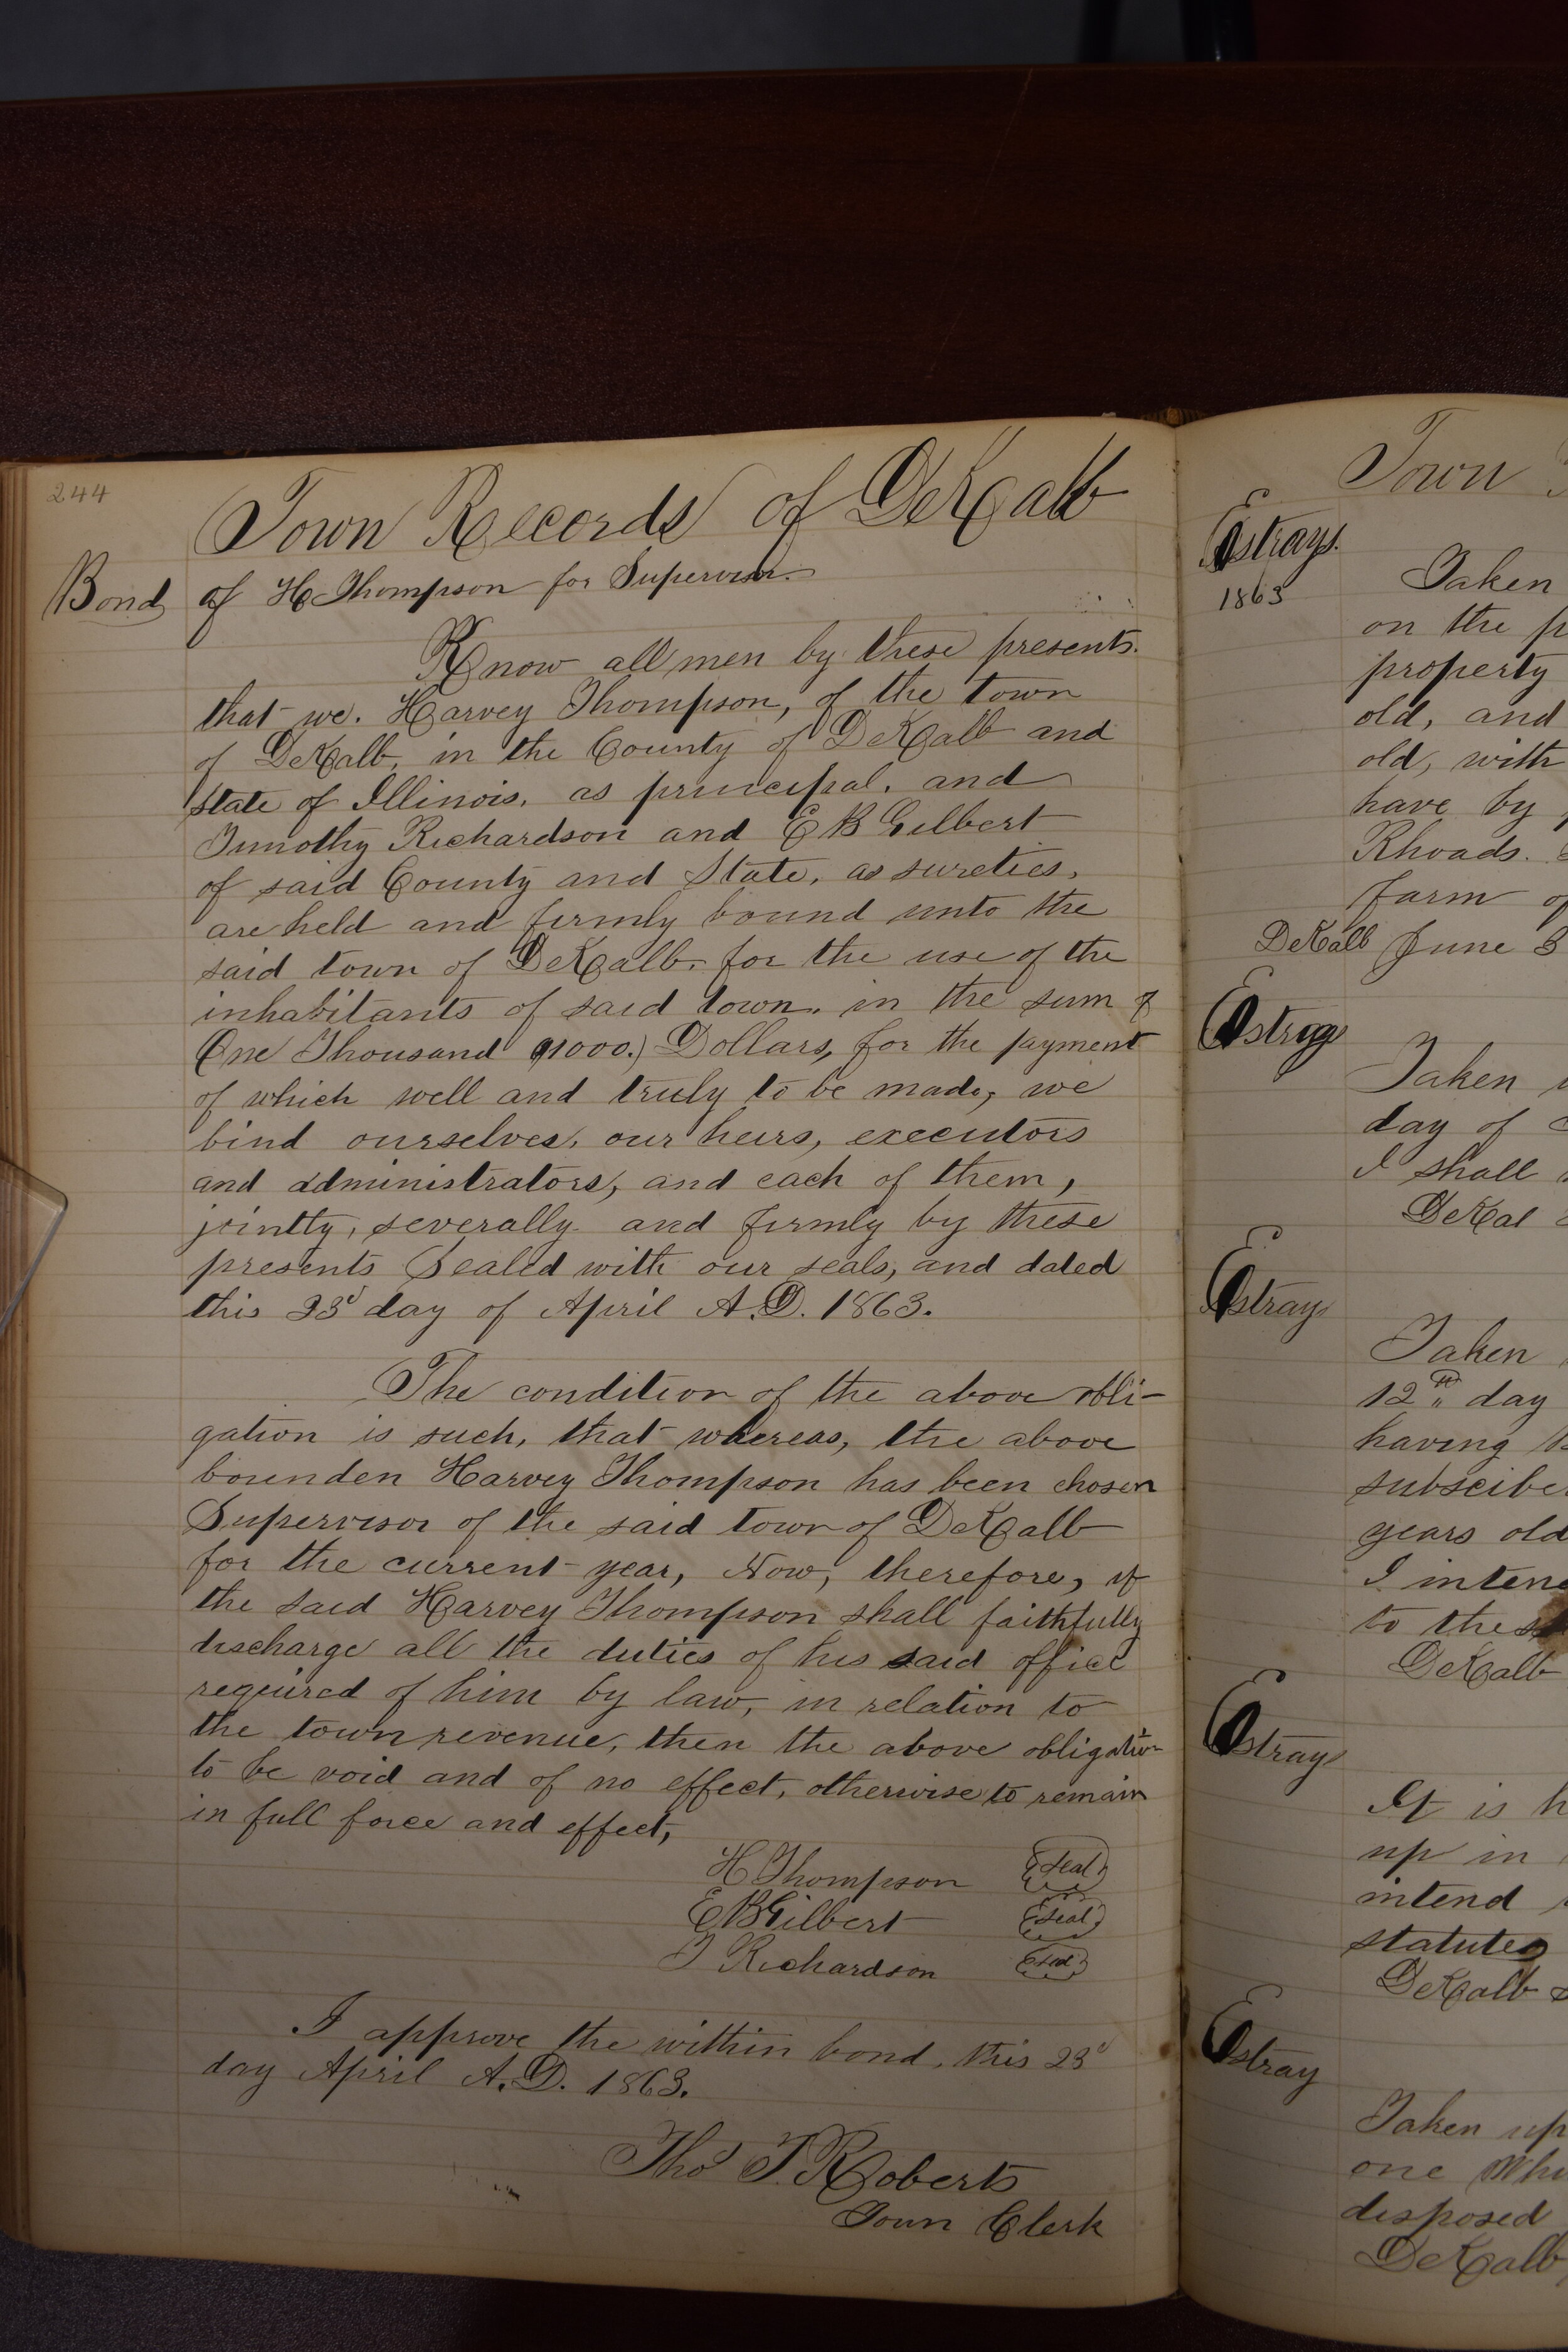 244
Town Records of DeKalb
Bond of H Thompson for Supervisor.
Know all men by these presents.
that we. Harvey Thompson, of the town
of DeKalb, in the County of DeKalb and
State of Illinois, as principal, and
Timothy Richardson and E B Gilbert
of said County and State, as sureties,
are held and firmly bound unto the
said town of DeKalb, for the use of the
inhabitants of said town, in the sum of
One Thousand ($1000.) Dollars, for the payment
of which well and truly to be made, we
bind ourselves, our heirs, executors
and administrators, and each of them,
jointly, severally and firmly by these
presents Sealed with our seals, and dated
this 23d day of April A.D. 1863.
The condition of the above obli-
gation is such, that whereas, the above
bounden Harvey Thompson has been chosen
Supervisor of the said town of DeKalb
for the current year, Now, therefore, if
the said Harvey Thompson shall faithfully
discharge all the duties of his said office
required of him by law, in relation to
the town revenue, then the above obligation
to be void and of no effect, otherwise to remain
in full force and effect,
H Thompson Seal
E B Gilbert Seal
T Richardson Seal
I approve the within bond, this 23d
day April A.D. 1863.
Thos T. Roberts
Town Clerk
Town
Estrays.
1863
Taken
on the
property
old, and
old, with
have by
Rhoads.
farm of
DeKalb June 3
Estray
Taken
day of
I shall
DeKal
Estray
Taken
12th day
having
subsciber
years old
I intend
to the
DeKalb
Estray
It is
up in
intend
statutes
DeKalb
Estray
Taken up
one
disposed
DeKalb